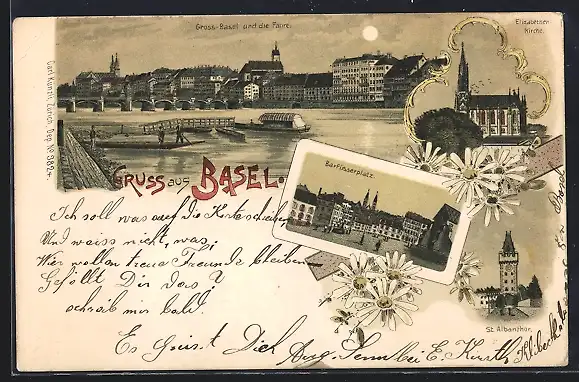 Gross-Basel und die Fähre.
Elisabethen
Kirche.
Carl Künzli, Zürich, Dep. No 982
GRUSS aus BASEL.
Barfüsserplatz.
St. Albanthor.
Ich soll was auf die Karte schreiben
Und weiss nicht, was;
Wir wollen treue Freunde bleiben
Gefällt Dir das?
schreib mir bald.
Es grüsst Dich Aug. Senn bei E.